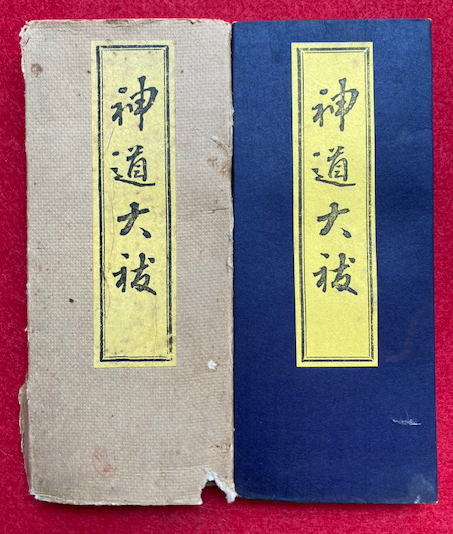 神道大祓
神道大祓